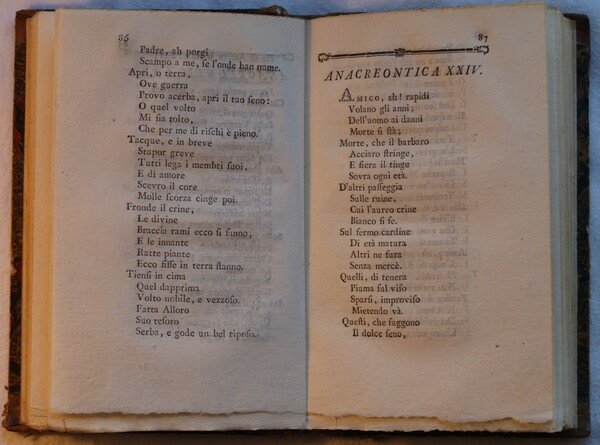 86
Padre, ah porgi
Scampo a me, se l'onde han nume.
Apri, o terra,
Ove guerra
Provo acerba, apri il tuo seno:
O quel volto
Mi sia tolto,
Che per me di rischi è pieno.
Tacque, e in breve
Stupor greve
Tutti lega i membri suoi,
E di amore
Scevro il core
Molle scorza cinge poi.
Fronde il crine,
Le divine
Braccia rami ecco si fanno,
E le innante
Ratte piante
Ecco fisse in terra stanno.
Tiensi in cima
Quel dapprima
Volto nobile, e vezzoso.
Fatta Alloro
Suo tesoro
Serba, e gode un bel riposo.
87
ANACREONTICA XXIV.
AMICO, ah! rapidi
Volano gli anni;
Dell'uomo ai danni
Morte si stà;
Morte, che il barbaro
Acciaro stringe,
E fiera il tinge
Sovra ogni età.
D'altri passeggia
Sulle ruine,
Cui l'aureo crine
Bianco si fe.
Sul fermo cardine
Di età matura
Altri ne fura
Senza mercè.
Quelli, di tenera
Piuma sul viso
Sparsi, improviso
Mietendo và.
Questi, che suggono
Il dolce seno,